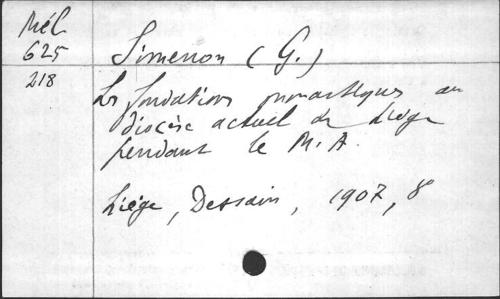 Mél
625
218
Simenon (G.)
Les fondations monastiques au
diocèse actuel de Liège
pendant le M.A.
Liège, Dessain, 1907, 8°